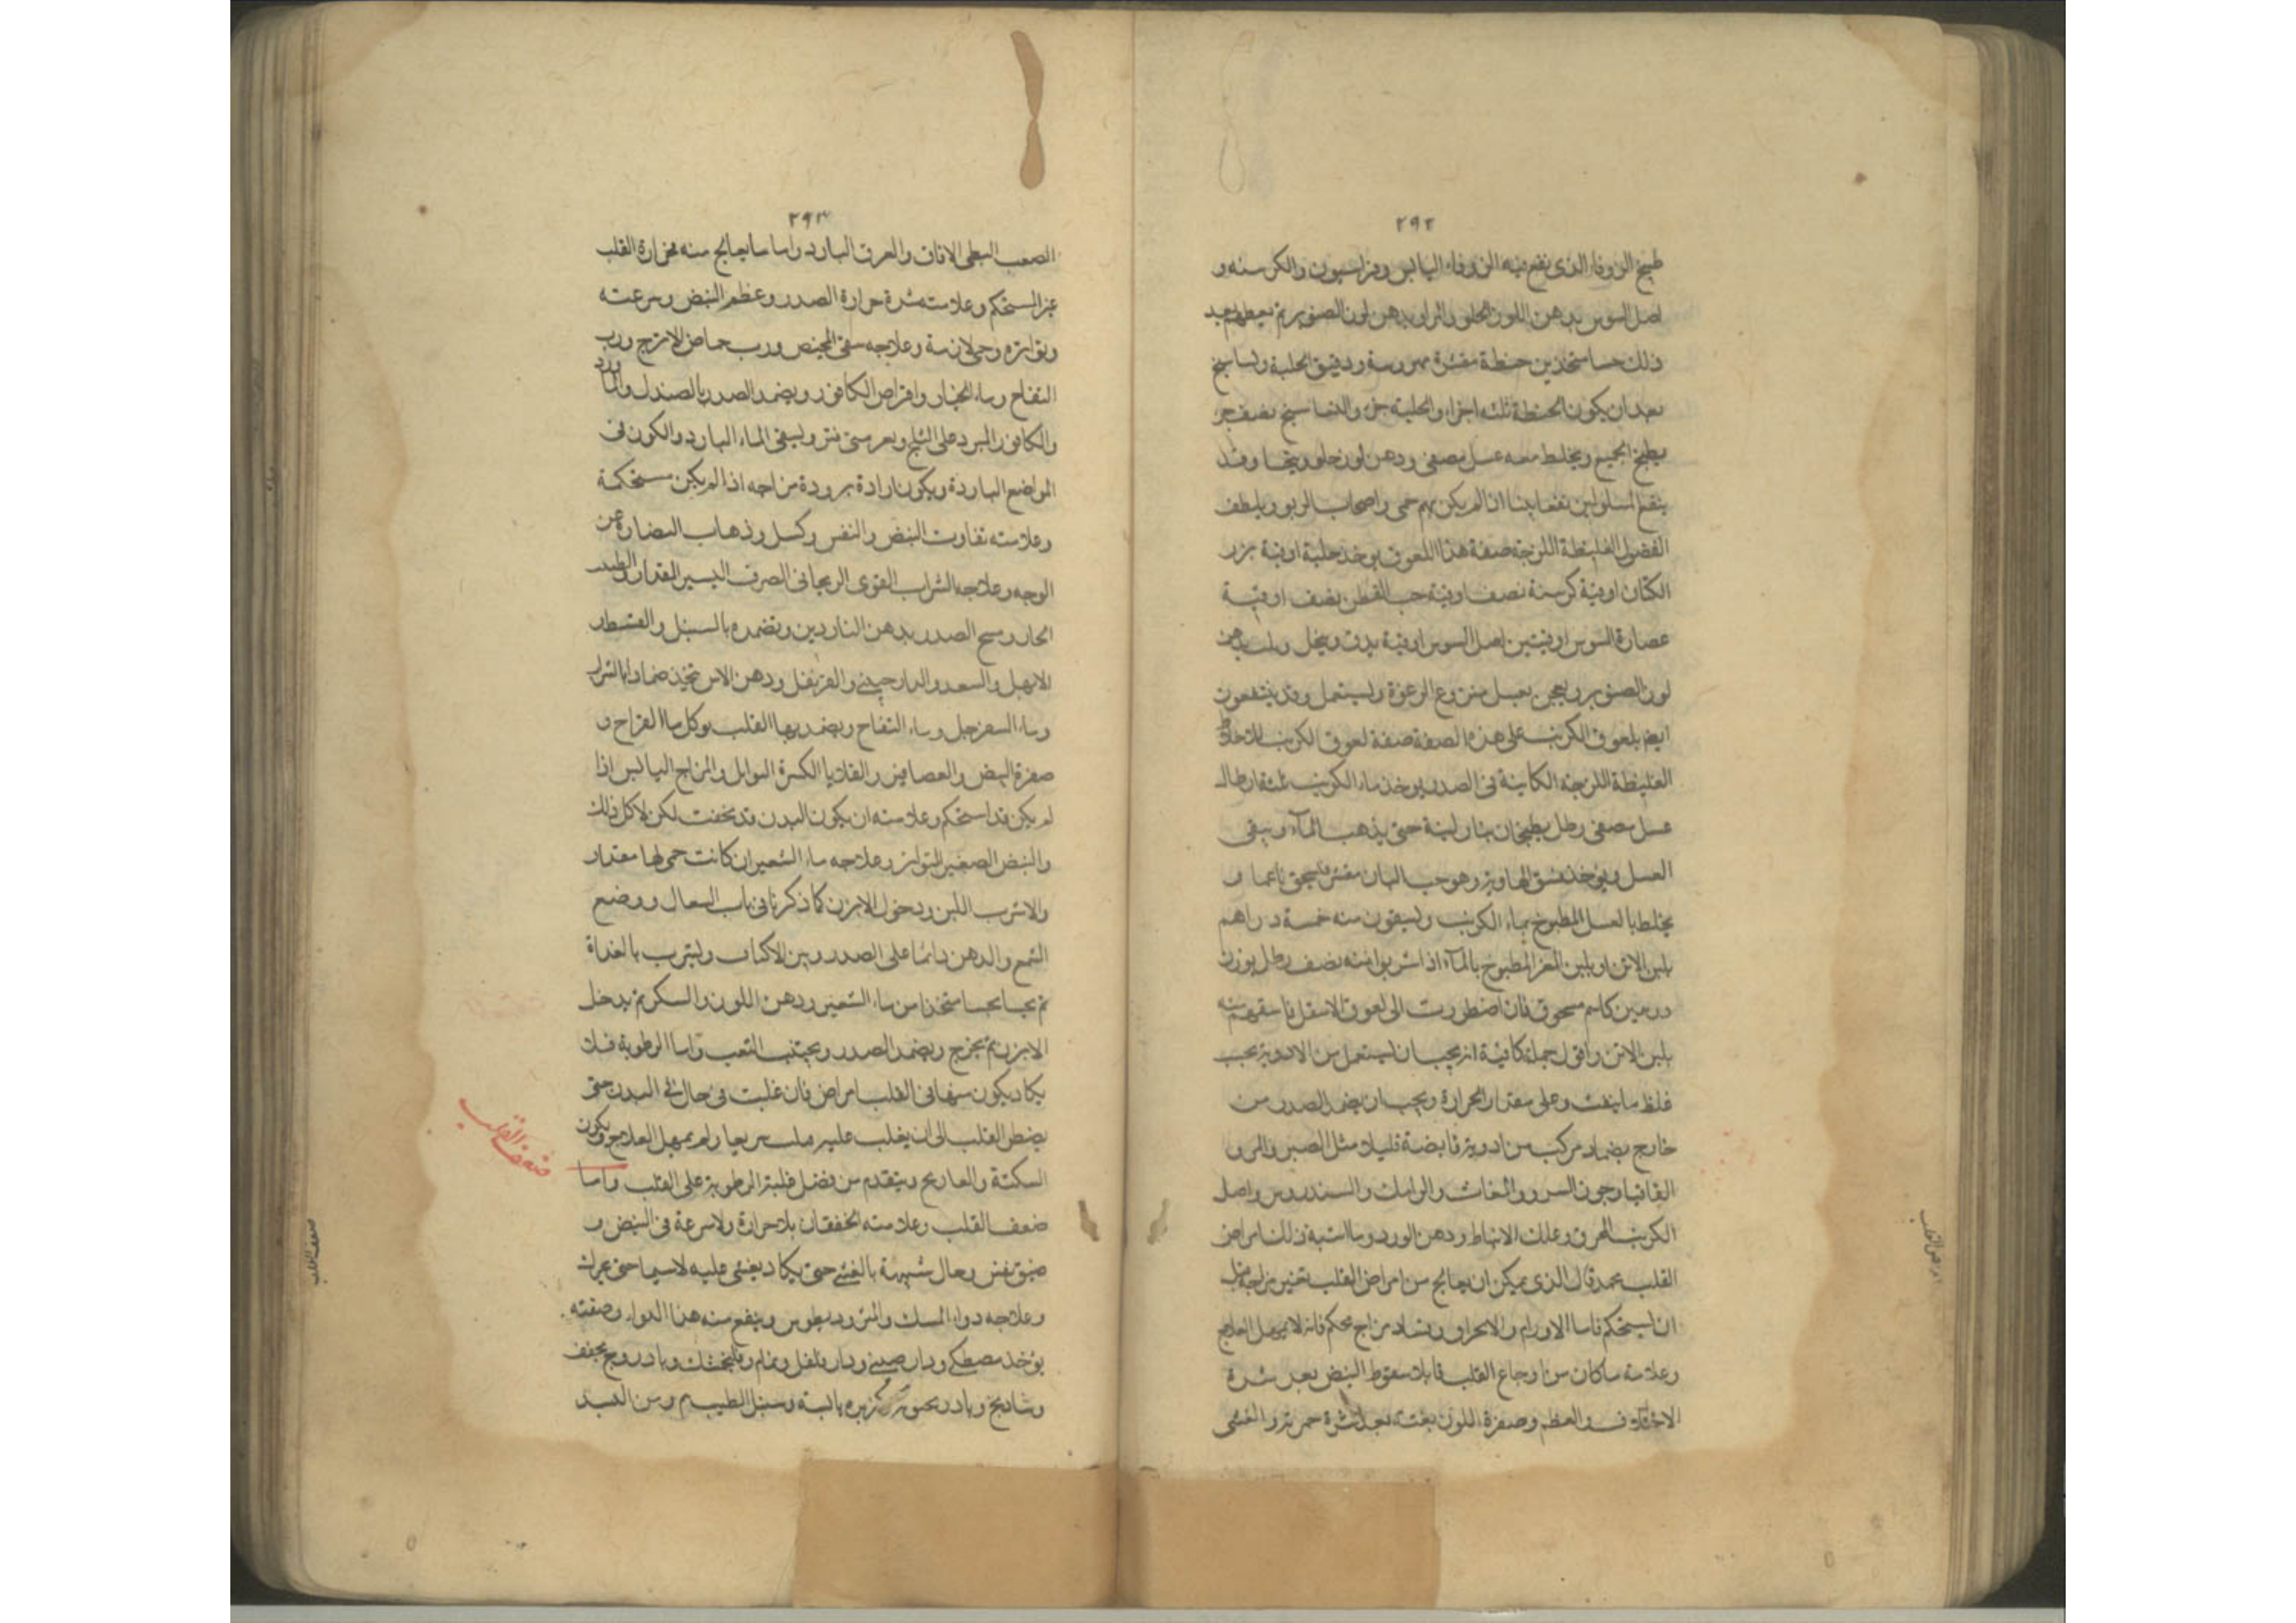 ٢٩٢
طبيخ الزوفا الذى يقع فيه الزوفاء اليابس وفراسيون والكرسنه و
اصل السوس بدهن اللوز الحلو والمر او بدهن لوز الصنوبر ثم يعطيهم بعد
ذلك حسا متخذ من حنطة مقشرة مهروسة ودقيق الحلبة ونساسنج
بعد ان يكون الحنطة ثلثه اجزاء والحلبة جزء والنشاسنج نصف جزء
يطبخ الجميع ويخلط معه عسل مصفى ودهن لوز حلو ويتحسا وقد
ينتفع المسلولين نفعا بينا ان لم يكن بهم حمى واصحاب الربو ويلطف
الفضول الغليظة اللزجة صفة هذا اللعوق يوخذ حلبة اوقية بزر
الكتان اوقية كرسنة نصف اوقية حب القطن نصف اوقية
عصارة السوس اوقيتين اصل السوس اوقية يدق وينخل ويلت بدهن
لوز الصنوبر ويعجن بعسل منزوع الرغوة ويستعمل وقد ينتفعون
ايضا بلعوق الكرنب على هذه الصفة صفة لعوق الكرنب للاخلاط
الغليظة اللزجة الكاينة فى الصدر يوخذ ماء الكرنب ثلثة ارطال
عسل مصفى رطل يطبخان بنار لينة حتى يذهب الماء ويبقى
العسل ويوخذ فستق الهاويز وهو حب البان مقشر فيسحق ناعما و
يخلط بالعسل المطبوخ بماء الكرنب ويسقون منه خمسة دراهم
بلبن الاتن او بلبن المعز المطبوخ بالماء اذا شربوا منه نصف رطل بوزن
درهمين كاسم مسحوق فان اضطررت الى لعوق الاسقل فاسقهم منه
بلبن الاتن واقول جملة كافية انه يجب ان يستعمل من الادوية بحسب
غلظ ما ينفث وعلى مقدار الحرارة ويجب ان يضمد الصدر من
خارج بضماد مركب من ادوية قابضة قليلا مثل الصبر والمر و
القاقيا وجوز السرو والمغاث والرامك والسندروس واصل
الكرنب المحرق وعلك الانباط ودهن الورد وما اشبه ذلك امراض
القلب محمد قال الذى يمكن ان يعالج من امراض القلب تغير مزاجه قبل
ان يستحكم فاما الاورام والانحراق وفساد مزاج محكم فانه لا يمهل العلاج
وعلامة ما كان من اوجاع القلب قاتلا سقوط النبض بعد شدة
الاختلاف والعظم وصفرة اللون بغتة بعد شدة حمرته والغشى
امراض القلب
٢٩٣
الصعب البطى الافاقة والعرق البارد واما ما يعالج منه فحرارة القلب
غير المستحكم وعلامته شدة حرارة الصدر وعظم النبض وسرعته
وتواتره وحمى لازمة وعلاجه سقى المخيض ورب حماض الاترج ورب
التفاح وماء الخيار واقراص الكافور ويضمد الصدر بالصندل والماورد
والكافور المبرد على الثلج وبعد متى فتر ويسقى الماء البارد والكون فى
المواضع الباردة ويكون ارادة برودة مزاجه اذا لم يكن مستحكمة
وعلامته تفاوت النبض والنفس وكسل وذهاب النضارة عن
الوجه وعلاجه الشراب القوى الريحانى الصرف اليسير المقدار والطيب
الحار ومسح الصدر بدهن الناردين وتضمده بالسنبل والقسط و
الابهل والسعد والدارصينى والقرنفل ودهن الاس تتخذ ضمادا بالشراب
وماء السفرجل وماء التفاح ويضمد بها القلب ويوكل ماء الفراخ و
صفرة البيض والعصافير والقلايا الكثيرة التوابل والمزاج اليابس اذا
لم يكن قد استحكم وعلامته ان يكون البدن قد نحفت لكن لا كل ذلك
والنبض الصغير المتواتر وعلاجه ماء الشعير ان كانت حمى لها مقدار
والا شرب اللبن ودخول الابزن كما ذكرنا فى باب السعال ووضع
الشمع والدهن دائما على الصدر وبين الاكتاف ويشرب بالغداة
ثم يحسا بحسا متخذا من ماء الشعير ودهن اللوز والسكر ثم يدخل
الابزن ثم يخرج ويضمد الصدر ويجتنب التعب واما الرطوبة فلا
يكاد يكون منها فى القلب امراض فان غلبت فى حال فى البدن حتى
يضطر القلب الى ان يغلب عليه هلك سريعا ولم يمهل العلاج ويكون
السكتة والفالج ويتقدم من فضل غلبة الرطوبة على القلب واما
ضعف القلب وعلامته الخفقان بلا حرارة ولا سرعة فى النبض و
ضيق نفس وحال شبيهة بالغشى حتى يكاد يغشى عليه لا سيما حتى يحرك
وعلاجه دواء المسك والمثروديطوس وينفع منه هذا الدواء وصفته
يؤخذ مصطكى ودارصينى ودارفلفل ونمام وفلنجمشك وبادروج مجفف
وشاديخ وبادرنجبويه كزبره يابسة وسنبل الطيب من كل ومن السد
ضعف القلب
ضعف القلب